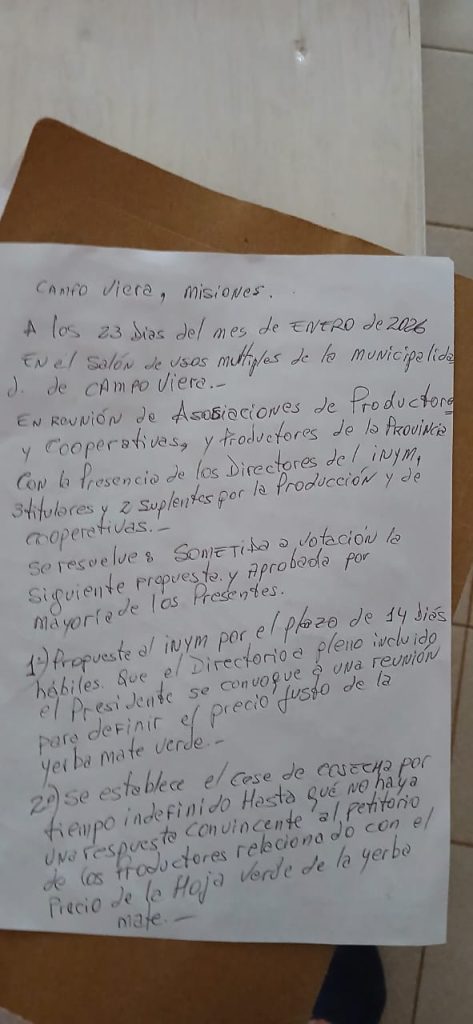 CAMPO Viera, Misiones.
A los 23 Dias del mes de ENERO de 2026
EN el Salón de usos multiples de la MUNICIPALIDA
D. de CAMPO Viera.-
EN REUNIÓN de Asosiaciones de Productores
y Cooperativas, y Productores de la Provincia
Con la Presencia de los Directores del INYM,
3 titulares y 2 Suplentes por la Producción y de
cooperativas.-
Se resuelve: SOMETIDA a votación la
siguiente propuesta. y Aprobada por
mayoría de los Presentes.
1º) Propuesta al INYM por el plazo de 14 días
hábiles. Que el Directorio a pleno incluido
el Presidente se convoque a una reunión
para definir el precio justo de la
yerba mate verde.-
2º) Se establece el Cese de COSECHA por
tiempo indefinido Hasta qué no haya
una respuesta convincente al petitorio
de los Productores relacionado con el
Precio de la Hoja Verde de la yerba
mate.-